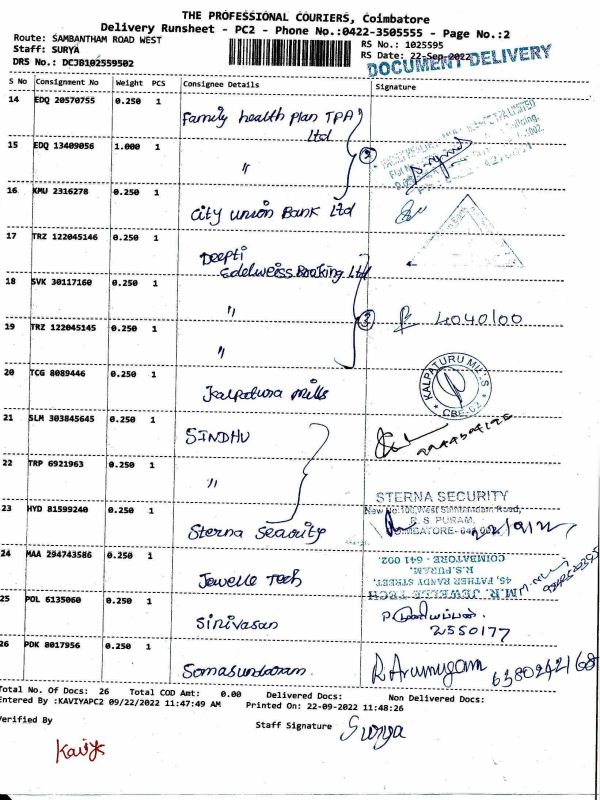 THE PROFESSIONAL COURIERS, Coimbatore
Delivery Runsheet - PC2 - Phone No.:0422-3505555 - Page No.:2
Route: SAMBANTHAM ROAD WEST
RS No.: 1025595
Staff: SURYA
RS Date: 22-Sep-2022
DRS No.: DCJB102559502
DOCUMENT DELIVERY
S No Consignment No Weight PCS Consignee Details Signature
14 EDQ 20570755 0.250 1 Family health Plan TPA Ltd
15 EDQ 13409056 1.000 1 〃
16 KMU 2316278 0.250 1 City union Bank Ltd
17 TRZ 122045146 0.250 1 Deepti Edelweiss Booking Ltd
18 SVK 30117160 0.250 1 〃 ③ 4040100
19 TRZ 122045145 0.250 1 〃
20 TCG 8089446 0.250 1 Kalpaturu Mills
KALPATURU MILLS
CBE-02
21 SLM 303845645 0.250 1 SINDHU
22 TRP 6921963 0.250 1 〃
STERNA SECURITY
New No:100,West Sambandam Road,
R. S. PURAM,
COIMBATORE- 641 002
23 HYD 81599240 0.250 1 Sterna Security
24 MAA 294743586 0.250 1 Jewelle Tech
M.R. JEWELLE TECH
45, FATHER RANDY STREET,
R.S.PURAM,
COIMBATORE - 641 002
25 POL 6135060 0.250 1 Sinivasan 2550177
26 PDK 8017956 0.250 1 Somasundaram R. Arumugam 6380242168
Total No. Of Docs: 26 Total COD Amt: 0.00 Delivered Docs: Non Delivered Docs:
Entered By :KAVIYAPC2 09/22/2022 11:47:49 AM Printed On: 22-09-2022 11:48:26
Verified By Staff Signature Surya
Kaviya